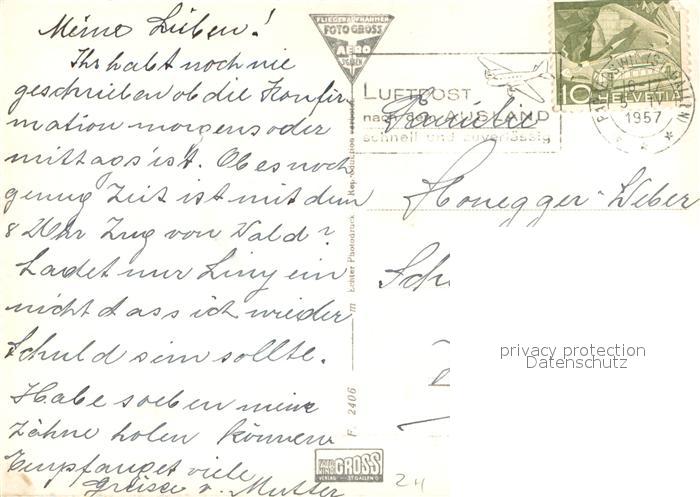 Meine Lieben!
Ihr habt noch nie
geschrieben ob die Konfir-
mation morgens oder
mittags ist. Ob es noch
genug Zeit ist mit dem
8 Uhr Zug von Wald?
Ladet nur Liny ein
nicht dass ich wieder
Schuld sein sollte.
Habe soeben meine
Zähne holen können
Empfanget viele
Grüsse v. Mutter
FLIEGERAUFNAHMEN
FOTO GROSS
AERO
ST. GALLEN
F. 2406 m Echter Photodruck Reproduktion verboten
FOTO GROSS
VERLAG ST. GALLEN
LUFTPOST
nach dem AUSLAND
schnell und zuverlässig
1957
10 HELVETIA
Familie
Honegger-Weber
Sch
privacy protection
Datenschutz
24